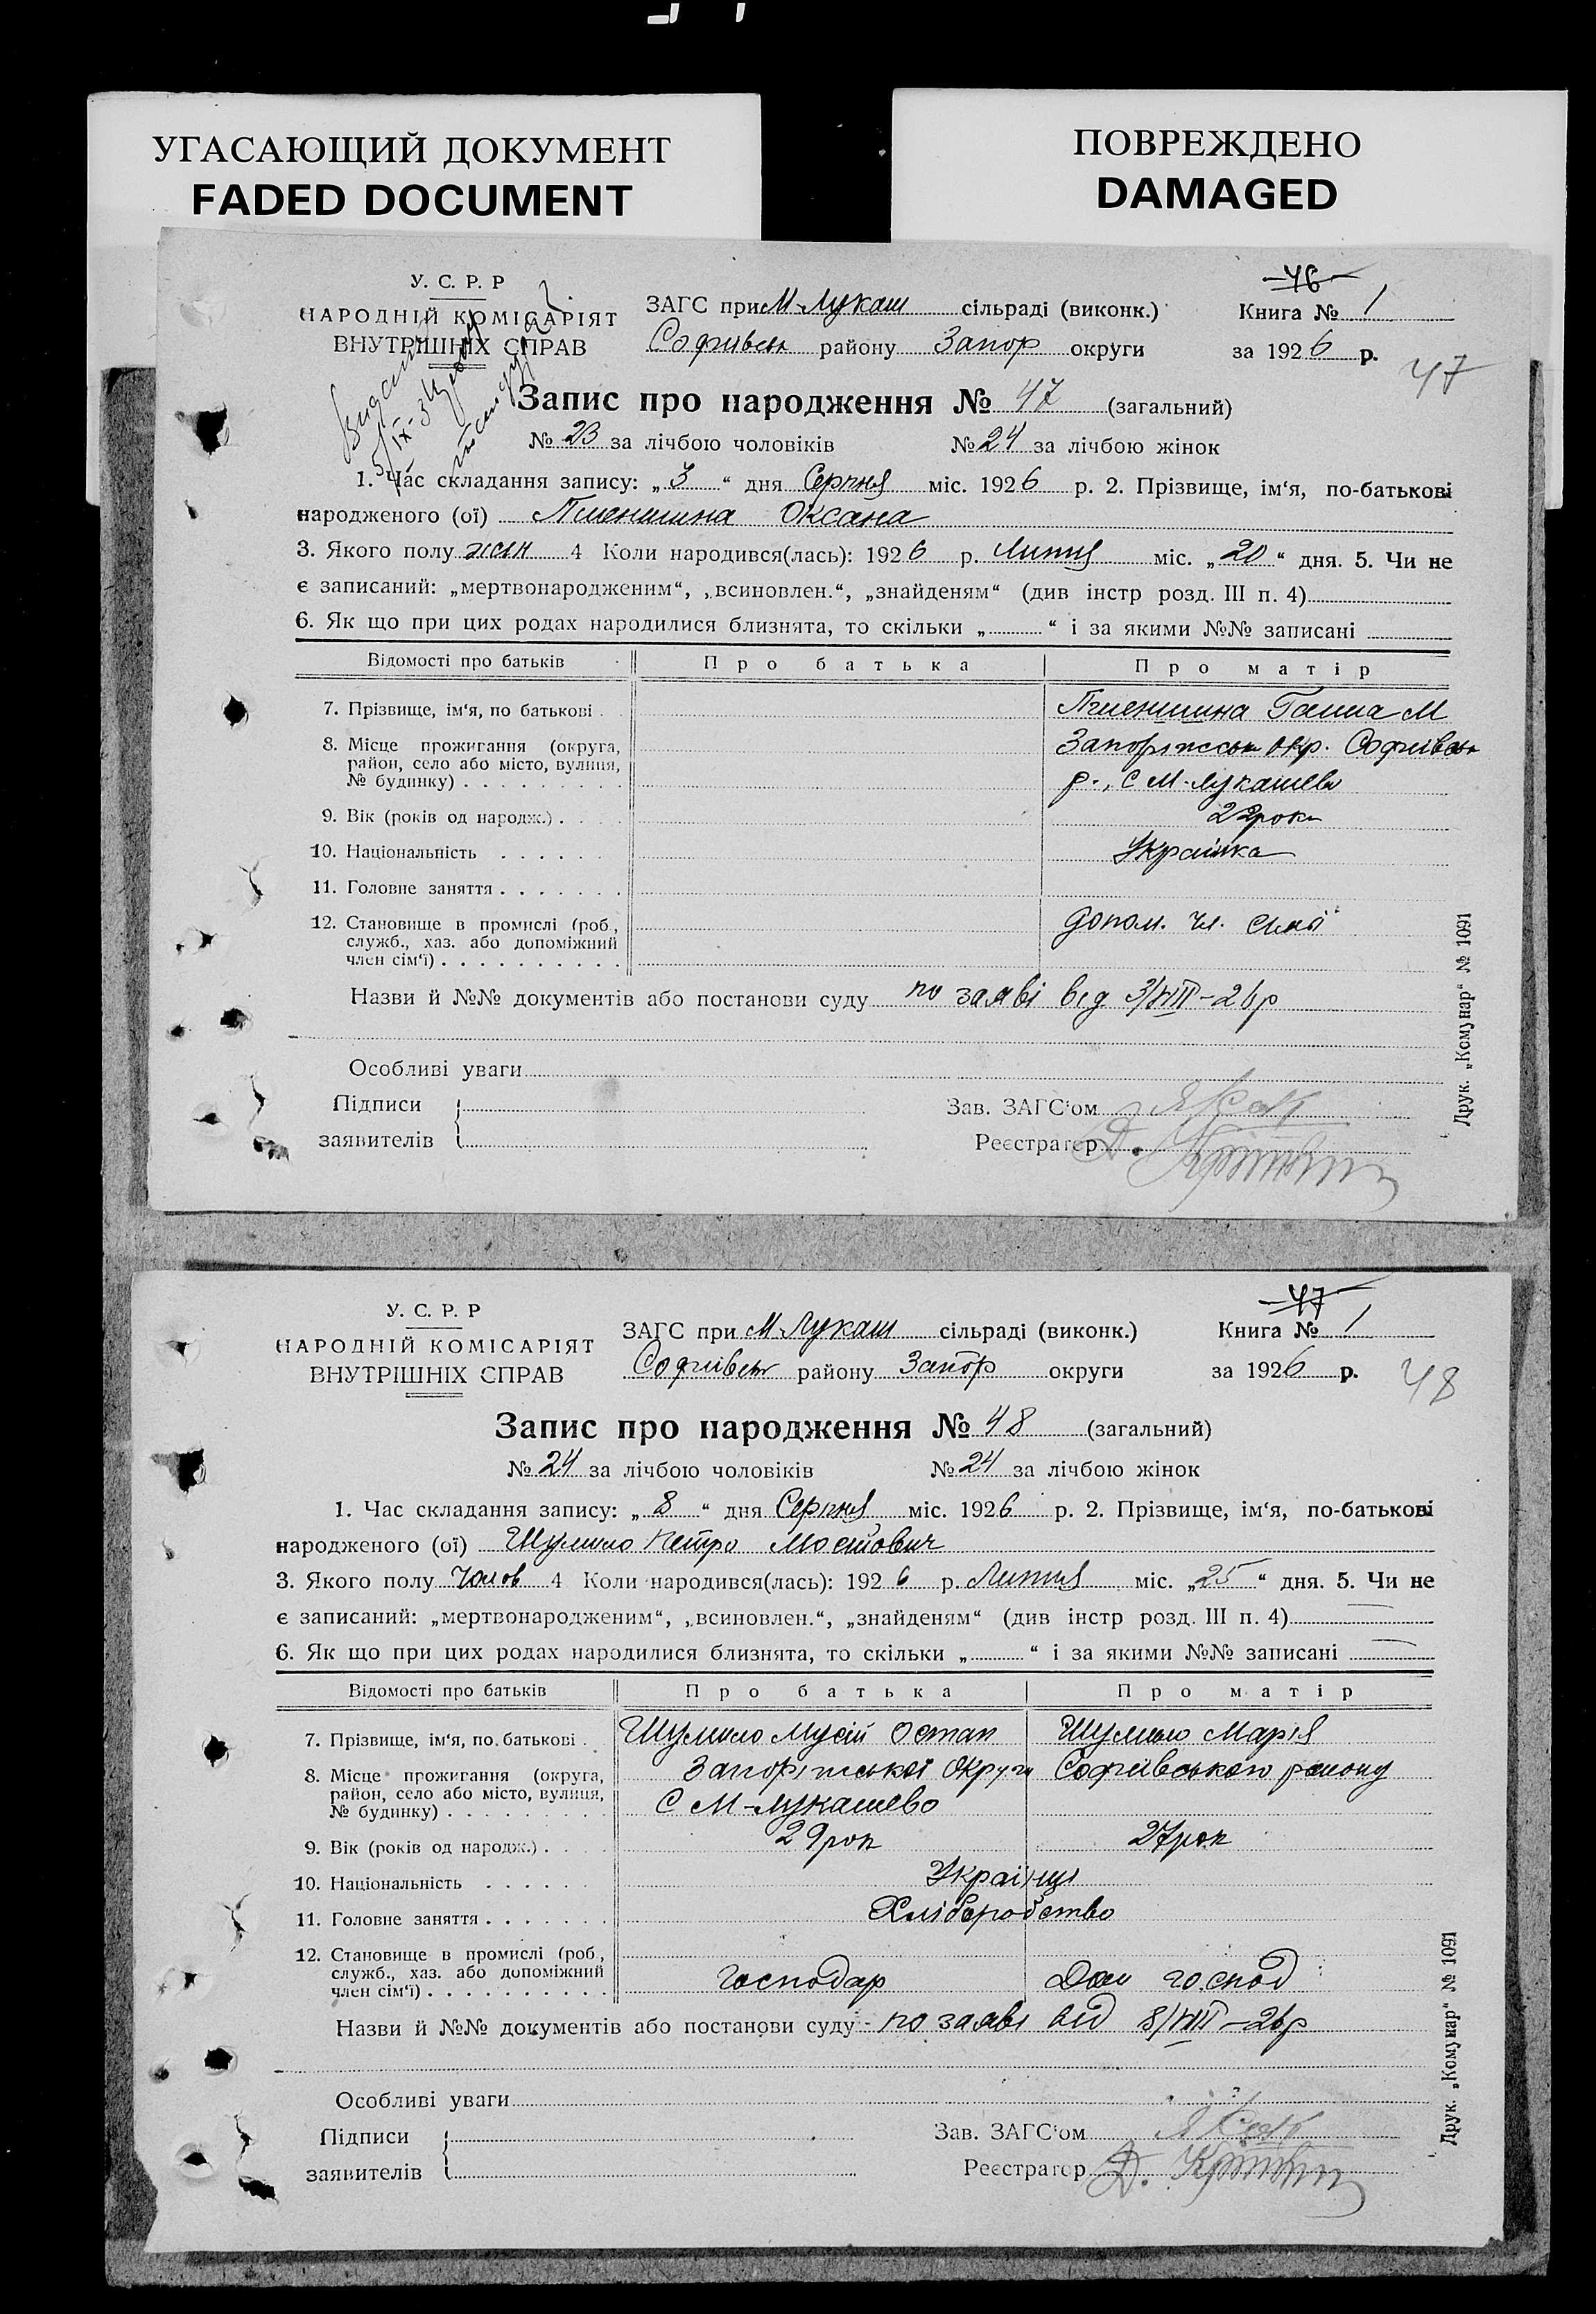 УГАСАЮЩИЙ ДОКУМЕНТ
FADED DOCUMENT
ПОВРЕЖДЕНО
DAMAGED
У. С. Р. Р
НАРОДНІЙ КОМІСАРІЯТ
ВНУТРІШНІХ СПРАВ
ЗАГС при М-Лукаш сільраді (виконк.)
Софиївськ району Запор округи
46
Книга № 1
за 1926 р.
47
Запис про народження № 47 (загальний)
№ 23 за лічбою чоловіків № 24 за лічбою жінок
1. Час складання запису: „3“ дня Серпня міс. 1926 р. 2. Прізвище, ім‘я, по-батькові
народженого (ої) Пшенишна Оксана
3. Якого полу жін 4 Коли народився(лась): 1926 р. Липня міс. „20“ дня. 5. Чи не
є записаний: „мертвонародженим“, „всиновлен.“, „знайденям“ (див інстр розд. III п. 4)
6. Як що при цих родах народилися близнята, то скільки „ “ і за якими №№ записані
Відомості про батьків Про батька Про матір
7. Прізвище, ім‘я, по батькові Пшенишна Ганна М
8. Місце прожигання (округа, Запоріжськ окр. Софиївськ
район, село або місто, вулиця,
№ будинку) р., С М-Лукашево
9. Вік (років од народж.) 22 роки
10. Національність Українка
11. Головне заняття
12. Становище в промислі (роб., допом. чл. сімї
служб., хаз. або допоміжний
член сім‘ї)
Назви й №№ документів або постанови суду по заяві від 3/VIII-26р
Особливі уваги
Підписи
заявителів
Зав. ЗАГС‘ом
Реєстратор Д.
Друк. „Комунар“ № 1091
У. С. Р. Р
НАРОДНІЙ КОМІСАРІЯТ
ВНУТРІШНІХ СПРАВ
ЗАГС при М Лукаш сільраді (виконк.)
Софиївськ району Запор округи
47
Книга № 1
за 1926 р.
48
Запис про народження № 48 (загальний)
№ 24 за лічбою чоловіків № 24 за лічбою жінок
1. Час складання запису: „8“ дня Серпня міс. 1926 р. 2. Прізвище, ім‘я, по-батькові
народженого (ої) Шумило Петро Мосійович
3. Якого полу Чолов 4 Коли народився(лась): 1926 р. Липня міс. „25“ дня. 5. Чи не
є записаний: „мертвонародженим“, „всиновлен.“, „знайденям“ (див інстр розд. III п. 4)
6. Як що при цих родах народилися близнята, то скільки „ “ і за якими №№ записані
Відомості про батьків Про батька Про матір
7. Прізвище, ім‘я, по батькові Шумило Мусій Остап Шумило Марія
8. Місце прожигання (округа, Запоріжської Округи Софиївського району
район, село або місто, вулиця,
№ будинку) С М-Лукашево
9. Вік (років од народж.) 29 рок 27 рок
10. Національність Українці
11. Головне заняття Хліборобство
12. Становище в промислі (роб.,
служб., хаз. або допоміжний Господар Дом господ
член сім‘ї)
Назви й №№ документів або постанови суду по заяві від 8/VIII-26р
Особливі уваги
Підписи
заявителів
Зав. ЗАГС‘ом
Реєстратор Д.
Друк. „Комунар“ № 1091